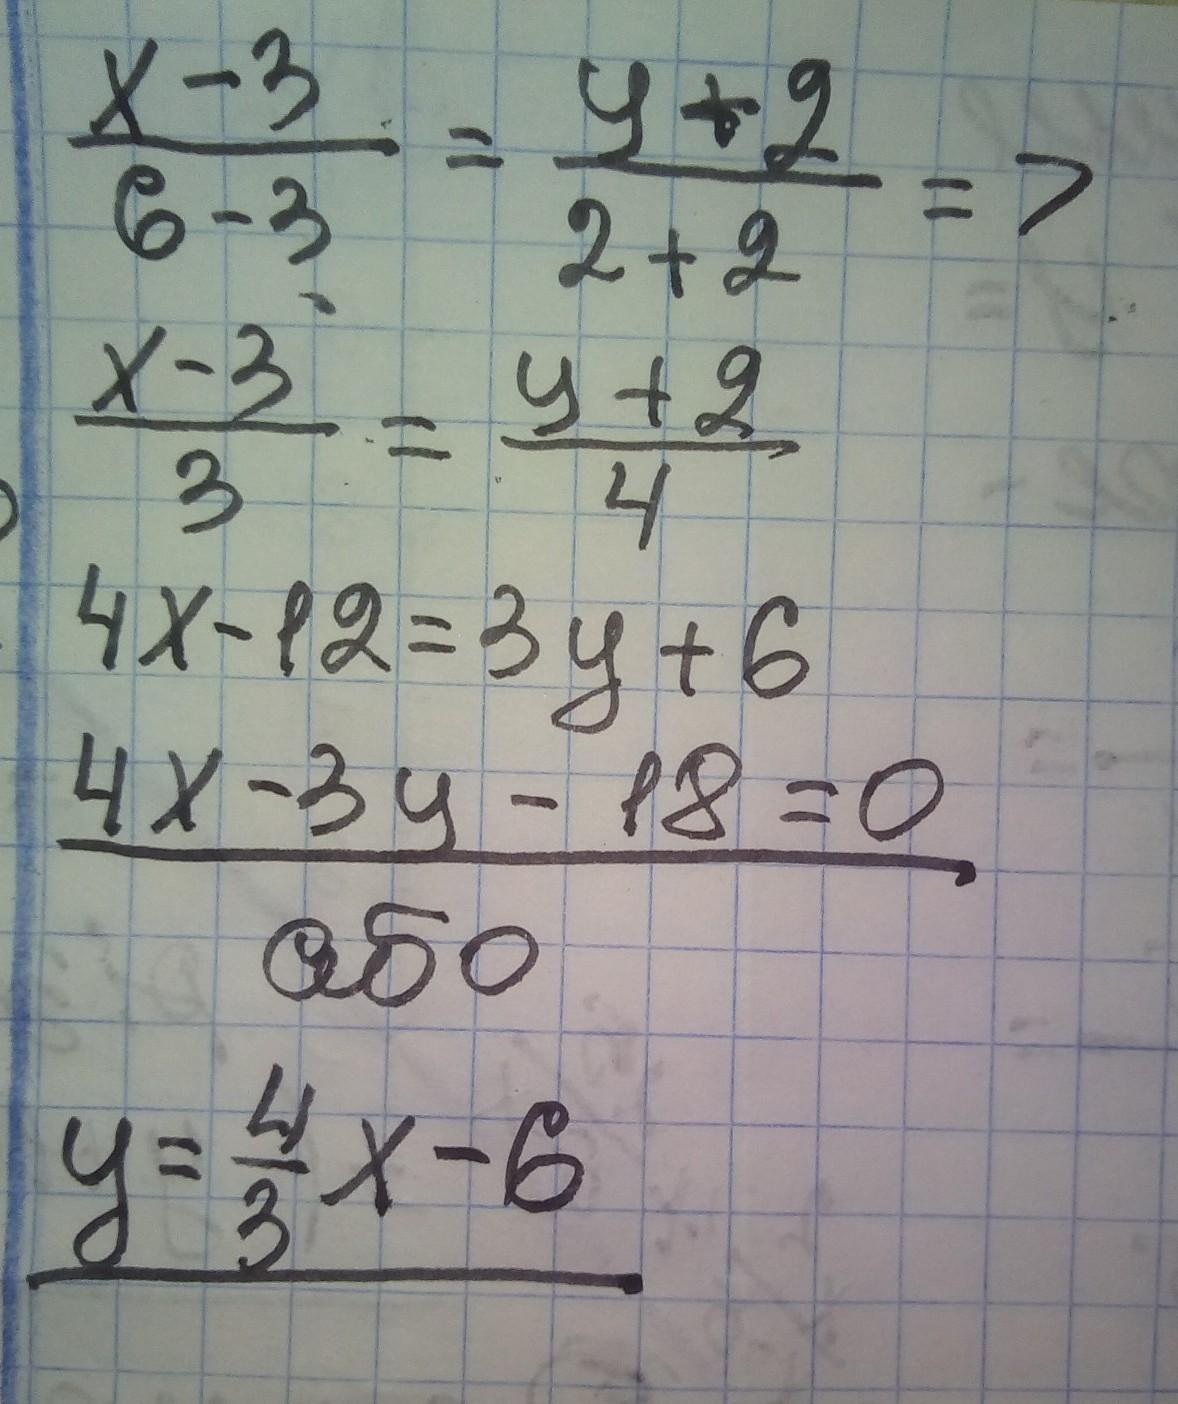 x-3/6-3 = y+2/2+2 =>
x-3/3 = y+2/4
4x-12=3y+6
4x-3y-18=0
або
y=4/3x-6